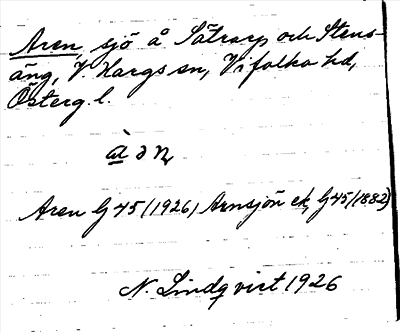 Aren, sjö å Sätrarp och Stens-
äng, V. Hargs sn, Vifolka hd,
Österg. l.
Aren G45 (1926) Arnsjön ek, G45 (1882)
N. Lindqvist 1926